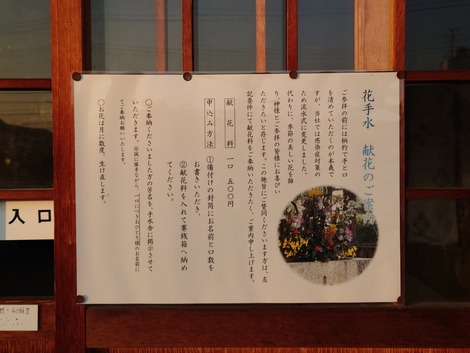 花手水　献花のご案
ご参拝の前には柄杓で手と口
を清めていただくのが本義で
すが、当社では感染症対策の
ため流水式に変更しました。
代わりに、季節の美しい花を飾
り、神様とご参拝の皆様にお喜びい
ただきたいと存じます。この趣旨にご賛同くださいます方は、左
記要件にて献花料をご奉納いただきたく、ご案内申し上げます。
献花料　一口　五〇〇円
申込み方法　①備付けの封筒にお名前と口数を
お書きいただき、
②献花料を入れて賽銭箱へ納め
てください。
〇ご奉納くださいました方の芳名を、手水舎に掲示させて
いただきます。
てご奉納お願いいたします。
〇お花は月に数度、生け直します。
入口